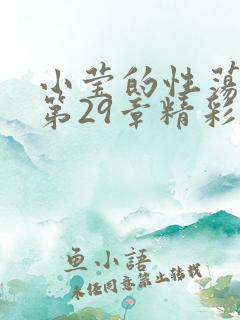 小莹的性荡
第29章精彩
鱼小語
未经同意禁止转载